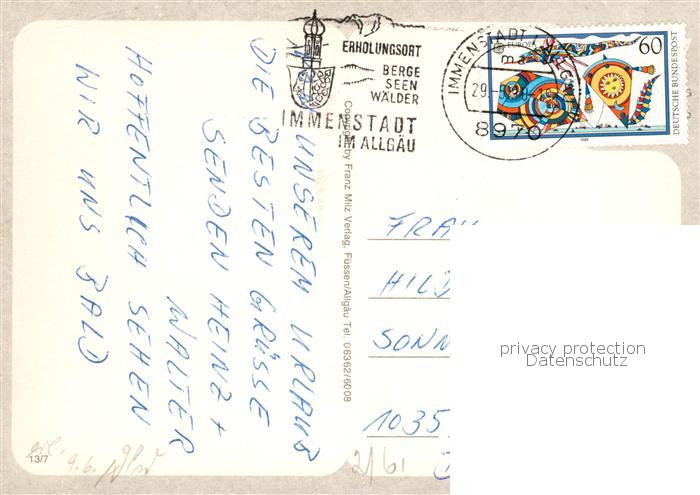 UNSEREM URLAUB
DIE BESTEN GRÜSSE
SENDEN HEINZ +
WALTER
HOFFENTLICH SEHEN
WIR UNS BALD
13/7
9.6.
Copyright by Franz Milz Verlag, Füssen/Allgäu Tel. 08362/6008
ERHOLUNGSORT
BERGE
SEEN
WÄLDER
IMMENSTADT
IM ALLGÄU
IMMENSTADT
29.
8970
EUROPA
60
DEUTSCHE BUNDESPOST
FRAU
HILD
SONN
1035
privacy protection
Datenschutz